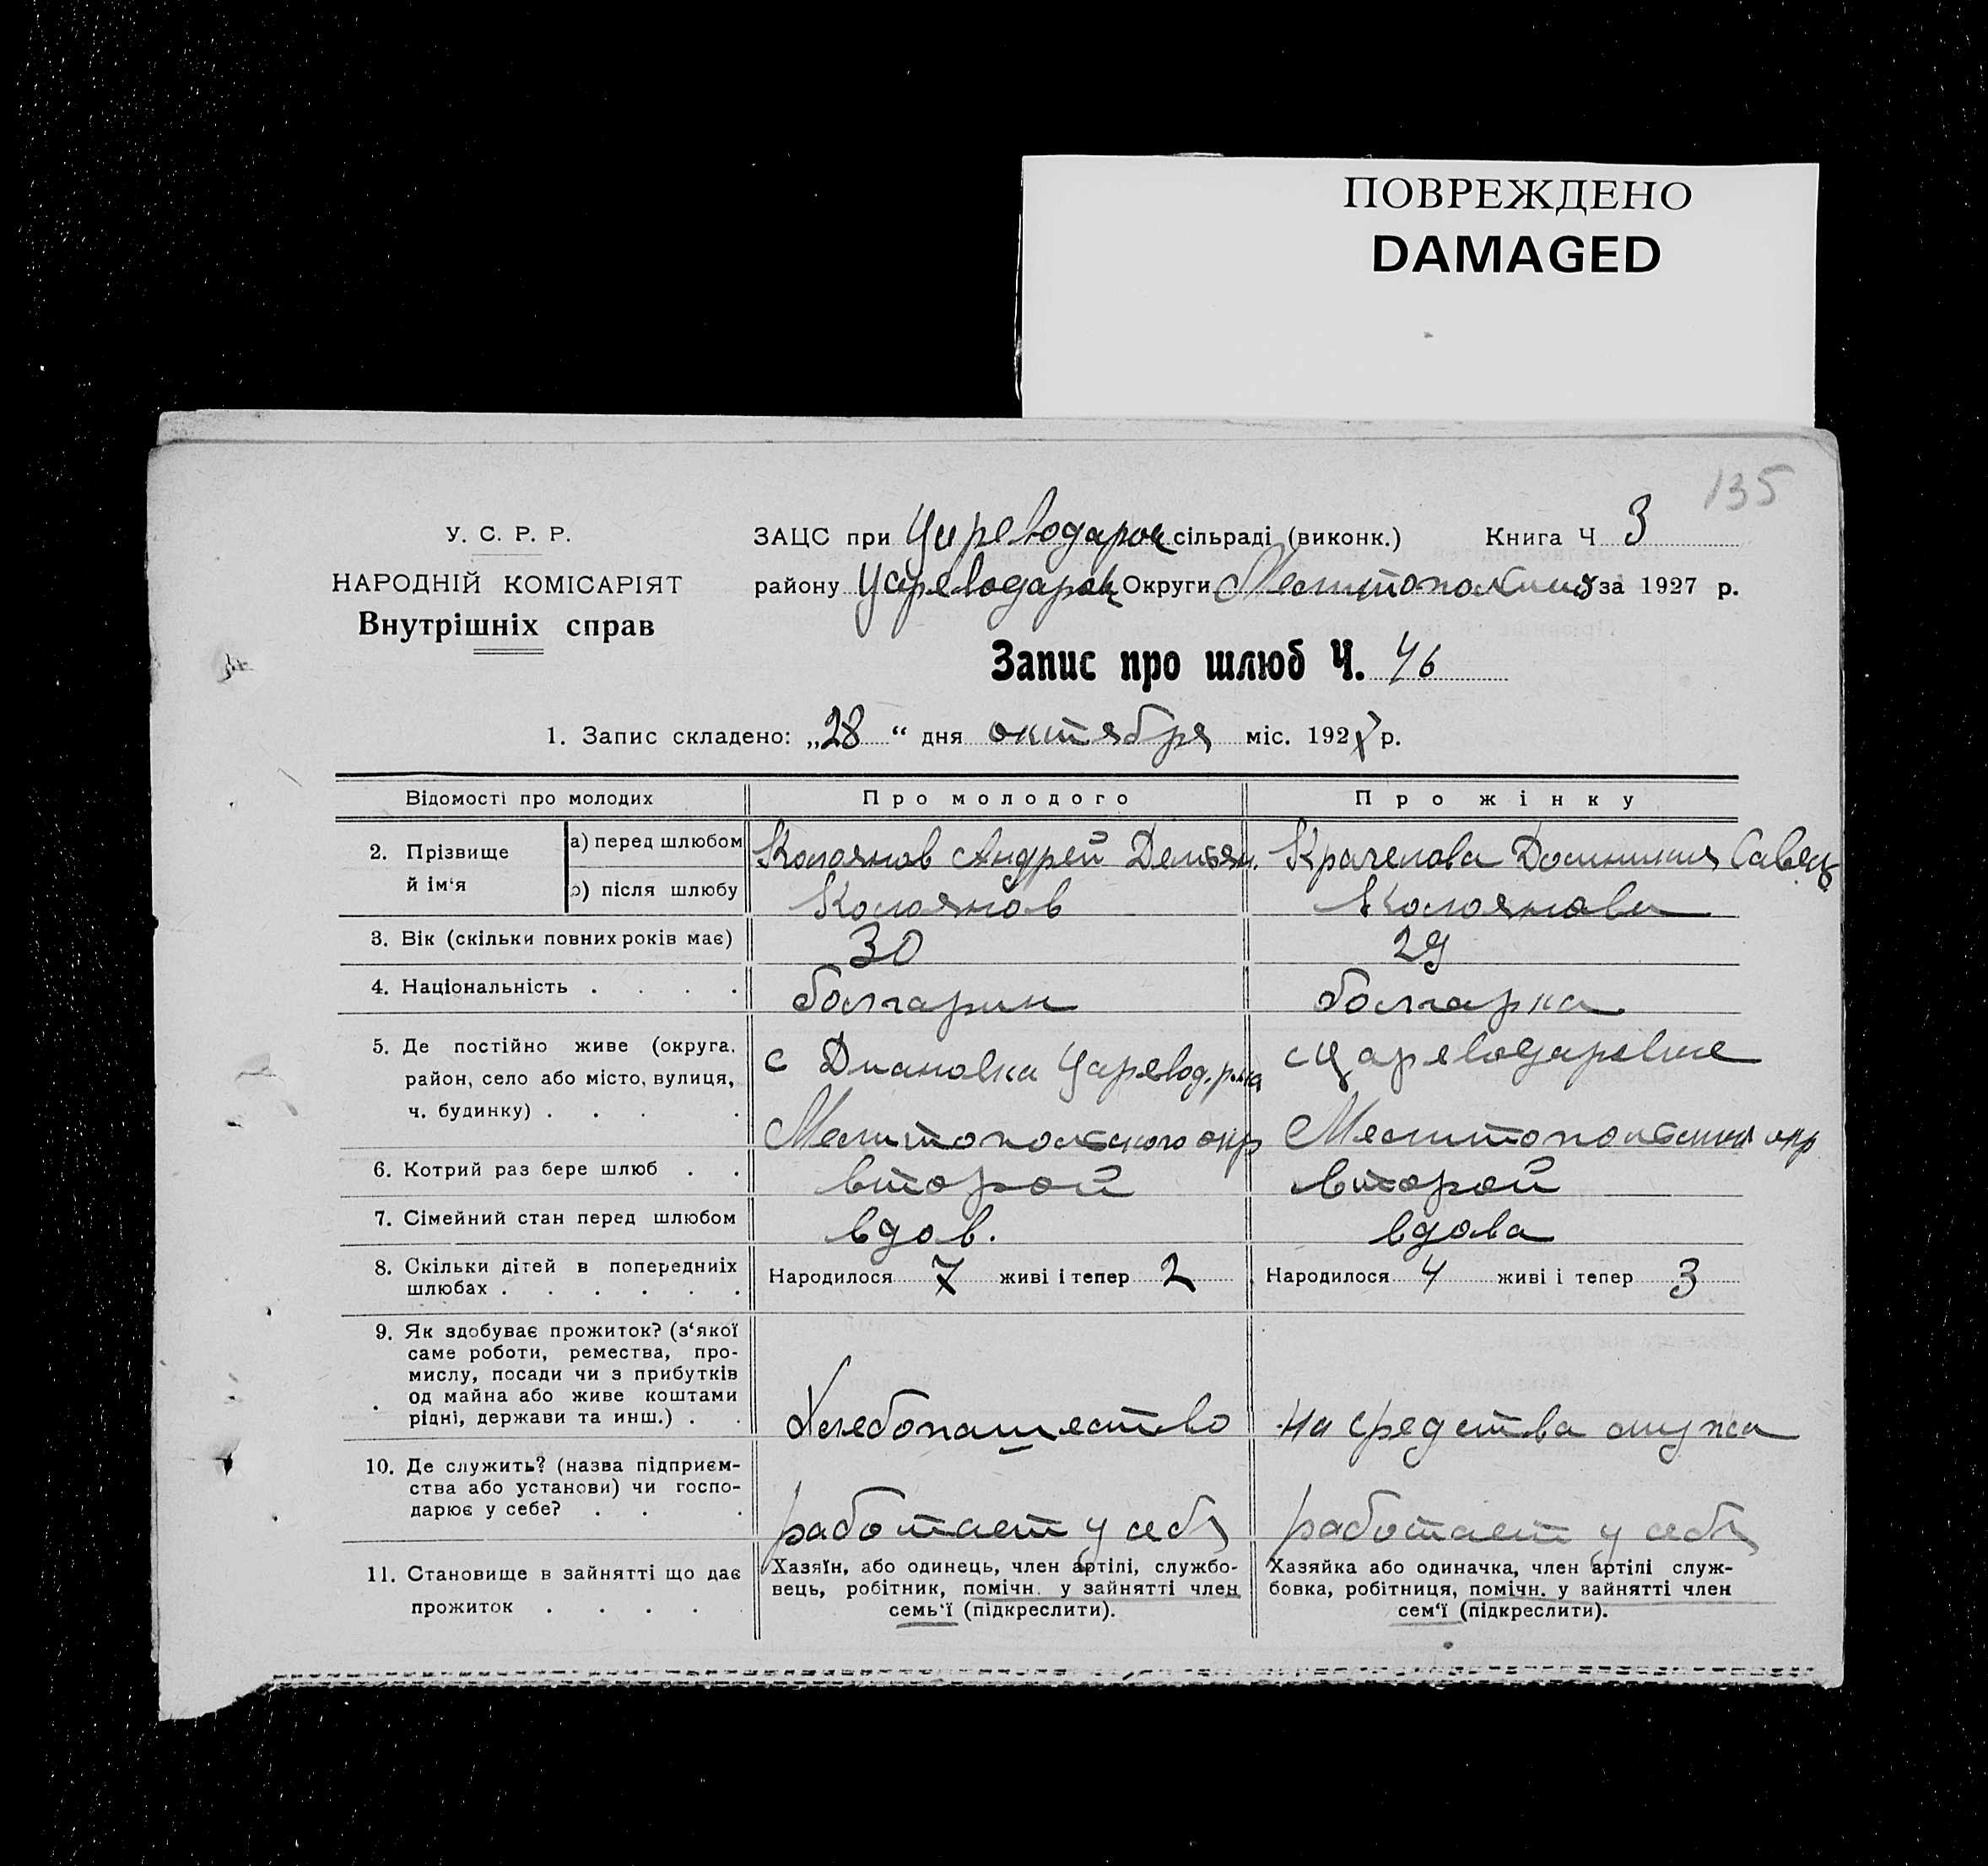 ПОВРЕЖДЕНО
DAMAGED
135
У. С. Р. Р.
НАРОДНІЙ КОМІСАРІЯТ
Внутрішніх справ
ЗАЦС при Цареводаров сільраді (виконк.) Книга Ч 3
району Цареводаров Округи за 1927 р.
Запис про шлюб Ч. 46
1. Запис складено: „28“ дня октября міс. 1927 р.
Відомості про молодих Про молодого Про жінку
2. Прізвище й ім‘я
а) перед шлюбом Колоянов Андрей Демьян. Крачелова Савец
б) після шлюбу Колоянов Колоянова
3. Вік (скільки повних років має) 30 29
4. Національність . . . . болгарин болгарка
5. Де постійно живе (округа, район, село або місто, вулиця, ч. будинку) . . . .
с Диановка Царевод. р-на
Мелитопольского окр
с Цареводаровка
Мелитопольский окр
6. Котрий раз бере шлюб . . второй второй
7. Сімейний стан перед шлюбом вдов. вдова
8. Скільки дітей в попередниіх шлюбах . . . . . .
Народилося 7 живі і тепер 2
Народилося 4 живі і тепер 3
9. Як здобуває прожиток? (з‘якої
саме роботи, ремества, про-
мислу, посади чи з прибутків
од майна або живе коштами
рідні, держави та инш.) . .
Хлебопашество на средства мужа
10. Де служить? (назва підприєм-
ства або установи) чи госпо-
дарює у себе? . . .
работает у себя работает у себя
11. Становище в зайнятті що дає
прожиток . . . .
Хазяїн, або одинець, член артілі, службо-
вець, робітник, помічн. у зайнятті член
семь‘ї (підкреслити).
Хазяйка або одиначка, член артілі служ-
бовка, робітниця, помічн. у зайнятті член
сем‘ї (підкреслити).